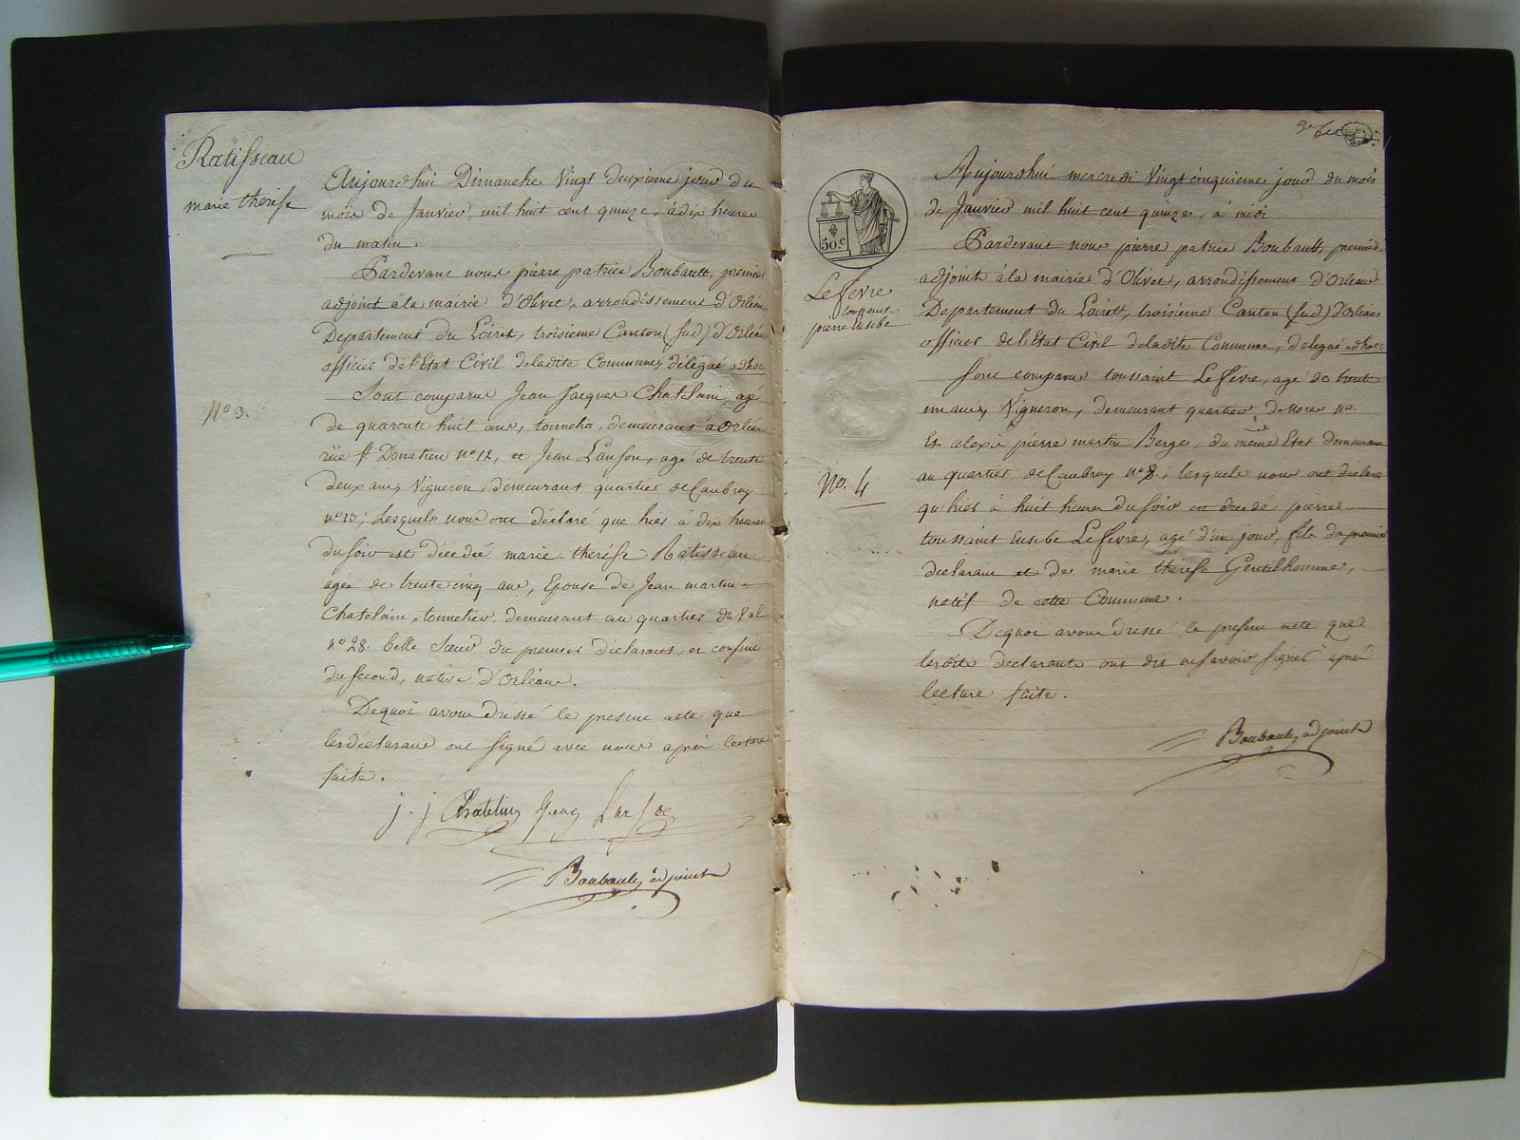 Ratisseau
marie therese
Aujourd'hui Dimanche Vingt deuxieme jour du
mois de Janvier, mil huit cent quinze, à dix heures
du matin.
Pardevant nous pierre patrice Boubault, premier
adjoint à la mairie d'Olivet, arrondissement d'Orléans
Departement du Loiret, troisieme Canton (sud) d'Orléans
officier de l'Etat Civil deladite Commune, délégué adhoc
No 3.
Sont comparus Jean Jacques Chatelain, agé
de quarante huit ans, tonnelier, demeurant à Orléans
rüe St Donatien no 12, et Jean Lanson, agé de trente
deux ans, Vigneron, demeurant quartier de Caubray
no 10; Lesquels nous ont déclaré que hier à dix heures
du soir est décédée marie therese Ratisseau
agée de trente cinq ans, Epouse de Jean martin
Chatelain, tonnelier, demeurant au quartier du Val
no 28. belle sœur du premier déclarant, et cousine
du second, native d'Orléans.
Dequoi avons dressé le present acte que
les déclarans ont signé avec nous après lecture
faite.
j. j Chatelin
Boubault, adjoint
50 c
Lefevre
toussaint
pierre Eusebe
Aujourdhui mercredi Vingt cinquieme jour du mois
de Janvier mil huit cent quinze, à midi
Pardevant nous pierre patrice Boubault, premier
adjoint à la mairie d'Olivet, arrondissement d'Orléans
Departement du Loirett, troisiéme Canton (sud) d'Orléans
officier de l'Etat Civil deladite Commune, délégué adhoc
Sont comparus toussaint Lefevre, agé de trente
ans, Vigneron, demeurant quartier no
Et alexis pierre martin Berge, du même Etat demeurant
No. 4
au quartier de Caubray no 8., lesquels nous ont declaré
qu'hier à huit heures du soir est decédé pierre
toussaint Eusebe Lefevre, agé d'un jour, fils du premier
declarant et de marie therese Gentilhomme,
natif de cette Commune.
Dequoi avons dressé le present acte que
lesdits declarants ont dit ne savoir signer après
lecture faite.
Boubault, adjoint